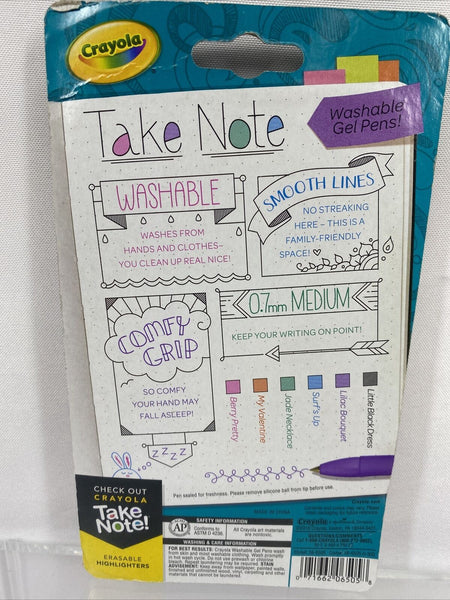 Crayola
Take Note
Washable
Gel Pens!
WASHABLE
WASHES FROM
HANDS AND CLOTHES–
YOU CLEAN UP REAL NICE!
SMOOTH LINES
NO STREAKING
HERE – THIS IS A
FAMILY-FRIENDLY
SPACE!
COMFY
GRIP
SO COMFY
YOUR HAND MAY
FALL ASLEEP!
ZZZZ
0.7mm MEDIUM
KEEP YOUR WRITING ON POINT!
Berry Pretty
My Valentine
Jade Necklace
Surf's Up
Lilac Bouquet
Little Black Dress
Pen sealed for freshness. Please remove silicone ball from tip before use.
CHECK OUT
CRAYOLA
Take
Note!
ERASABLE
HIGHLIGHTERS
MADE IN CHINA
SAFETY INFORMATION
AP
Conforms to
ASTM D 4236.
All Crayola art materials
are nontoxic.
WASHABILITY INFORMATION
FOR BEST RESULTS: Crayola Washable Gel Pens wash
from skin and most washable clothing. Wash promptly
in hot wash cycle. Do not use prewash or chlorine
bleach. Repeat laundering may be required. STAIN
ADVISORY: Keep away from wallpaper, painted walls,
finished and unfinished wood, vinyl, carpeting and other
materials that cannot be laundered.
Crayola
QUESTIONS/COMMENTS
0 71662 06505 8